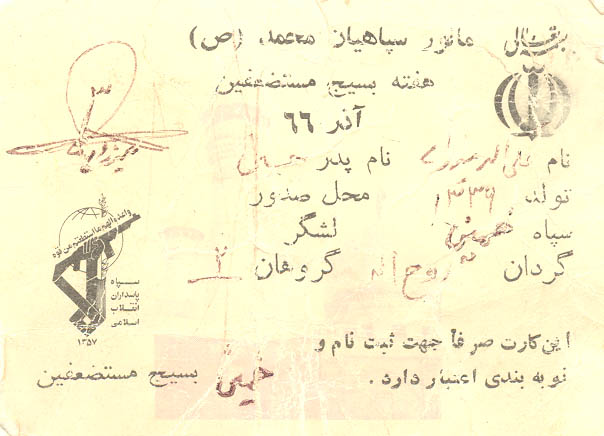 بسمه تعالی
مانور سپاهیان محمد (ص)
هفته بسیج مستضعفین
آذر ۶۶
نام علی اله نام پدر
تولد ۱۳۳۶ محل صدور
سپاه خمین لشگر
گردان روح اله گروهان ۲
واعدوالهم مااستطعتم من قوه
سپاه
پاسداران
انقلاب
اسلامی
۱۳۵۷
این کارت صرفاً جهت ثبت نام و
نوبه بندی اعتبار دارد .
بسیج مستضعفین خمین